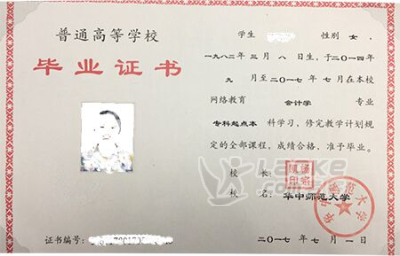 普通高等学校
毕业证书
证书编号:
学生 性别 女,
一九八二年 三月 八 日生,于二〇一四年
九 月至二〇一七年 七月在本校
网络教育 会计学 专业
专科起点本 科学习,修完教学计划规
定的全部课程,成绩合格,准予毕业。
校 长:
校 名: 华中师范大学
二〇一七年 七 月 一 日